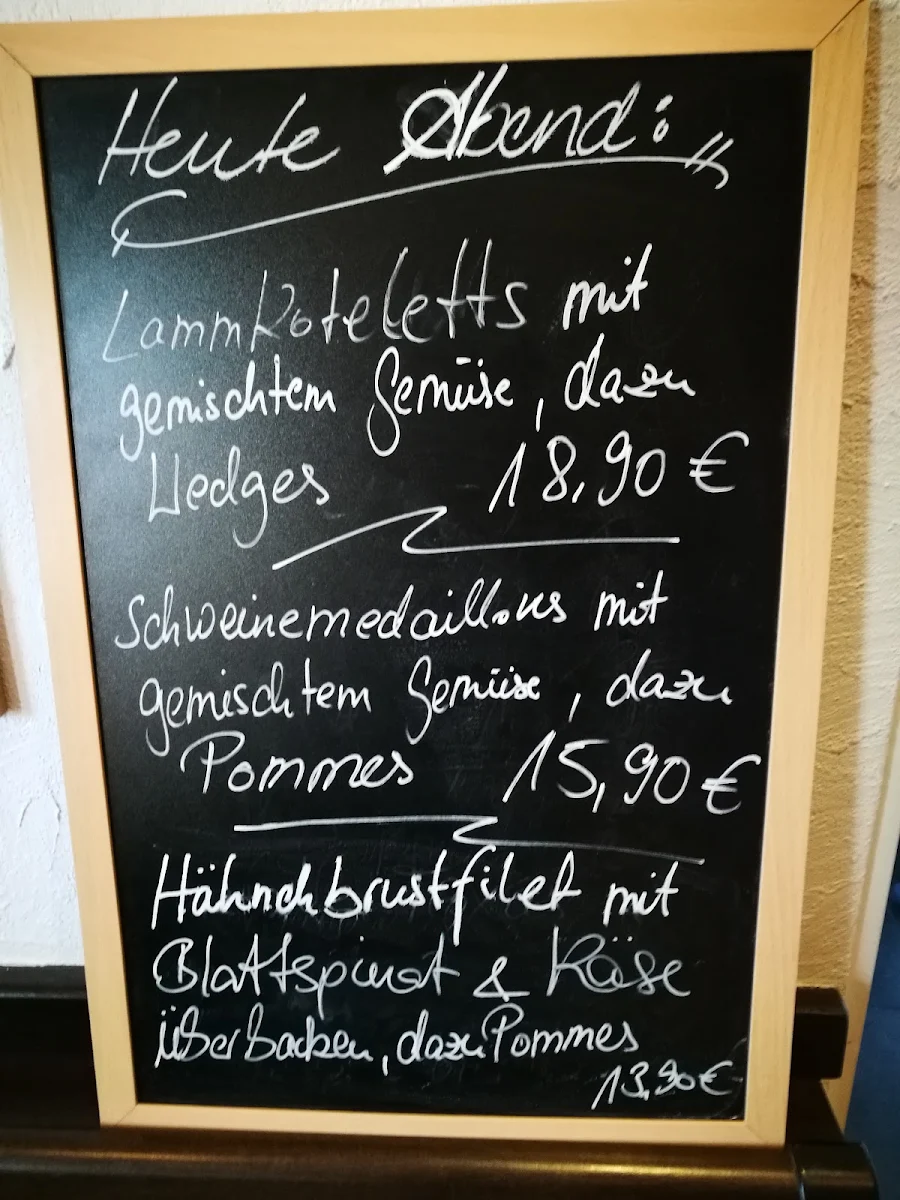 Heute Abend:
Lammkoteletts mit
gemischtem Gemüse, dazu
Wedges 18,90 €
Schweinemedaillons mit
gemischtem Gemüse, dazu
Pommes 15,90 €
Hähnchbrustfilet mit
Blattspinat & Käse
überbacken, dazu Pommes
13,90 €